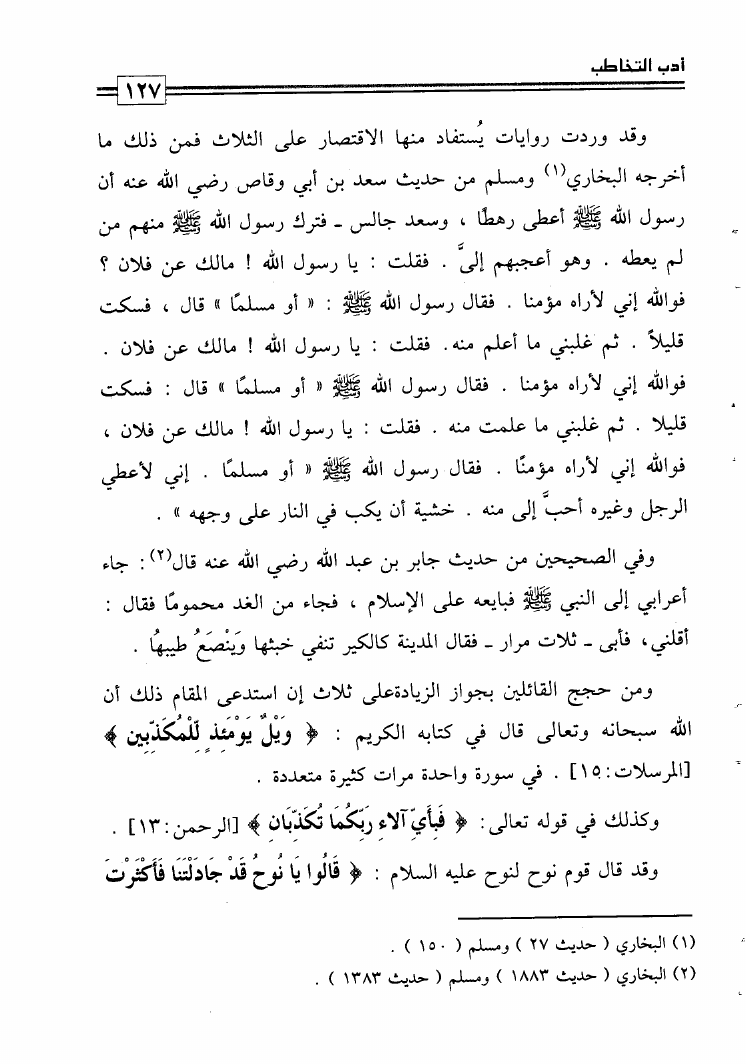 أدب التخاطب
١٢٧
وقد وردت روايات يُستفاد منها الاقتصار على الثلاث فمن ذلك ما
أخرجه البخاري(١) ومسلم من حديث سعد بن أبي وقاص رضي الله عنه أن
رسول الله ﷺ أعطى رهطًا ، وسعد جالس ـ فترك رسول الله ﷺ منهم من
لم يعطه . وهو أعجبهم إليَّ . فقلت : يا رسول الله ! مالك عن فلان ؟
فوالله إني لأراه مؤمنا . فقال رسول الله ﷺ : « أو مسلمًا » قال ، فسكت
قليلاً . ثم غلبني ما أعلم منه. فقلت : يا رسول الله ! مالك عن فلان .
فوالله إني لأراه مؤمنا . فقال رسول الله ﷺ « أو مسلمًا » قال : فسكت
قليلا . ثم غلبني ما علمت منه . فقلت : يا رسول الله ! مالك عن فلان ،
فوالله إني لأراه مؤمنًا . فقال رسول الله ﷺ « أو مسلمًا . إني لأعطي
الرجل وغيره أحبَّ إلى منه . خشية أن يكب في النار على وجهه » .
وفي الصحيحين من حديث جابر بن عبد الله رضي الله عنه قال(٢) : جاء
أعرابي إلى النبي ﷺ فبايعه على الإسلام ، فجاء من الغد محمومًا فقال :
أقلني، فأبى ـ ثلاث مرار ـ فقال المدينة كالكير تنفي خبثها وَيَنْصَعُ طيبهُا .
ومن حجج القائلين بجواز الزيادةعلى ثلاث إن استدعى المقام ذلك أن
الله سبحانه وتعالى قال في كتابه الكريم : ﴿ وَيْلٌ يَوْمَئِذٍ لِّلْمُكَذِّبِين ﴾
[المرسلات:١٥] . في سورة واحدة مرات كثيرة متعددة .
وكذلك في قوله تعالى: ﴿ فَبِأَيِّ آلاءِ رَبِّكُمَا تُكَذِّبَانِ ﴾ [الرحمن:١٣] .
وقد قال قوم نوح لنوح عليه السلام : ﴿ قَالُوا يَا نُوحُ قَدْ جَادَلْتَنَا فَأَكْثَرْتَ
(١) البخاري ( حديث ٢٧ ) ومسلم ( ١٥٠ ) .
(٢) البخاري ( حديث ١٨٨٣ ) ومسلم ( حديث ١٣٨٣ ) .